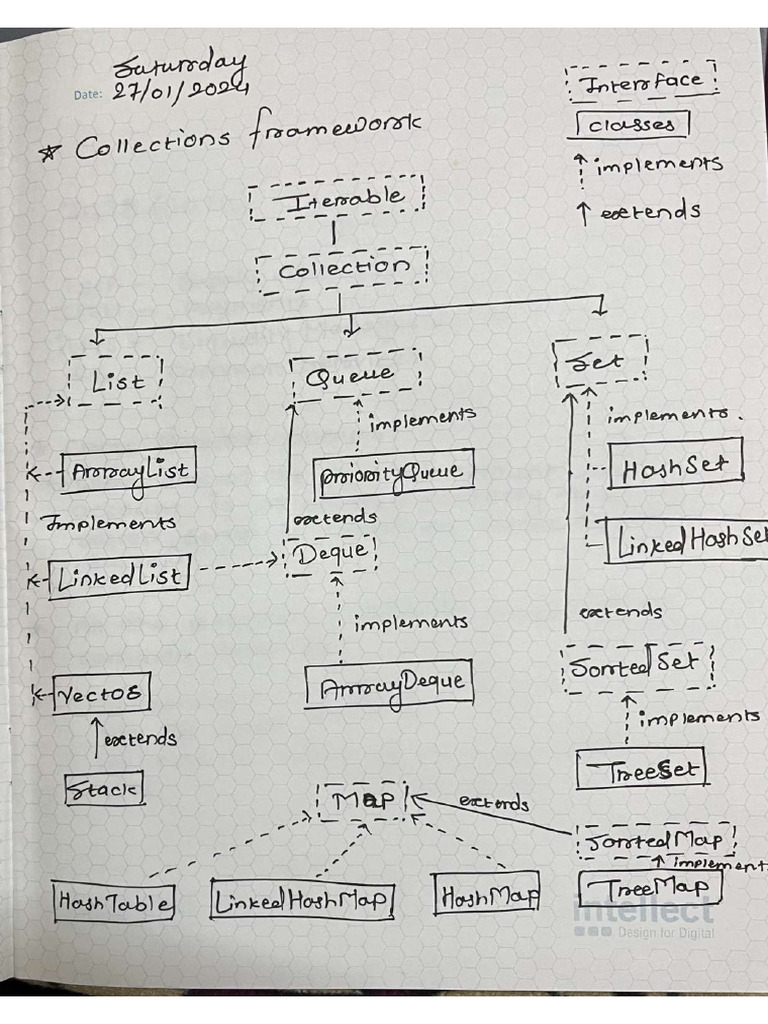 Saturday
Date: 27/01/2024
Interface
classes
implements
extends
* Collections framework
Iterable
Collection
List
Queue
Set
implements
implements.
ArrayList
PriorityQueue
HashSet
Implements
extends
LinkedList
Deque
LinkedHashSet
implements
extends
Vector
ArrayDeque
SortedSet
extends
implements
Stack
TreeSet
Map
extends
SortedMap
implement
HashTable
LinkedHashMap
HashMap
TreeMap
intellect
Design for Digital